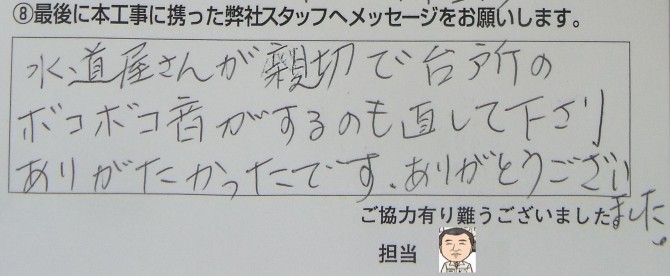 ⑧最後に本工事に携った弊社スタッフへメッセージをお願いします。
水道屋さんが親切で台所の
ボコボコ音がするのも直して下さり
ありがたかったです、ありがとうござい
ました。
ご協力有り難うございました
担当